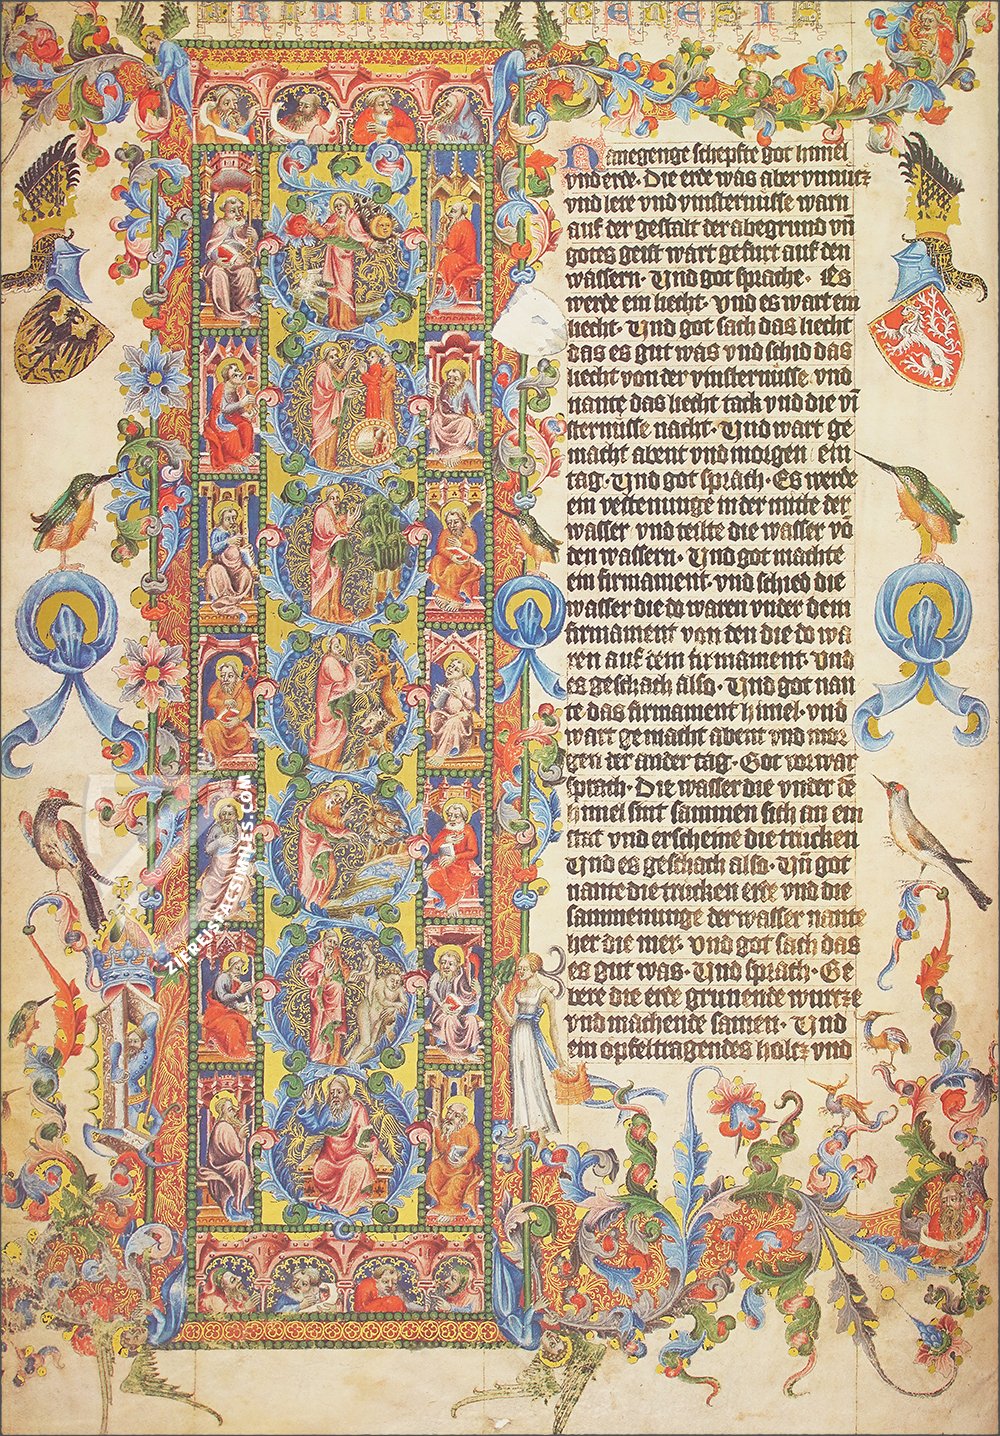 PRI LIBER GENESIS
Nanegenge schepfte got himel
vnd erde · Die erde was aber vnnucz
vnd lere vnd vinsternusse warn
auf der gestalt der abegrund vn̄
gotes geist wart gefurt auf den
wassern · Vnd got sprache · Es
werde ein liecht · vnd es wart ein
liecht · Vnd got sach das liecht
das es gut was vnd schid das
liecht von der vinsternusse vnd
nante das liecht tack vnd die vī
sternusse nacht · Vnd wart ge
macht abent vnd morgen ein
tag · Vnd got sprach · Es werde
ein vestenunge in der mitte der
wasser vnd teilte die wasser vō
den wassern · Vnd got machte
ein firmament · vnd schied die
wasser die do waren vnder dem
firmament von den die do wa
ren auf dem firmament · vnd
es geschach also · Vnd got nan
te das firmament himel · vnd
wart gemacht abent vnd mor
gen der ander tag · Got vorwar
sprach · Die wasser die vnder dē
himel sint sammen sich an ein
stat vnd erscheine die trucken
Vnd es geschach also · Vn̄ got
nante die trucken erde vnd die
sammenunge der wasser nante
her die mer · vnd got sach das
es gut was · Vnd sprach · Ge
bere die erde grunende wurtze
vnd machende samen · Vnd
ein opfeltragendes holcz vnd
ZIEREISFACSIMILES.COM